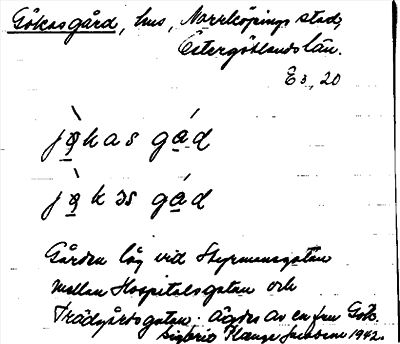 Gökasgård, hus, Norrköpings stad,
Östergötlands län.
E 3, 20
jö̀kas gád
jö̀kɔs gád
Gården låg vid Styrmansgatan
mellan Hospitalsgatan och
Trädgårdsgatan. ägdes av en fru Gök.
1942.